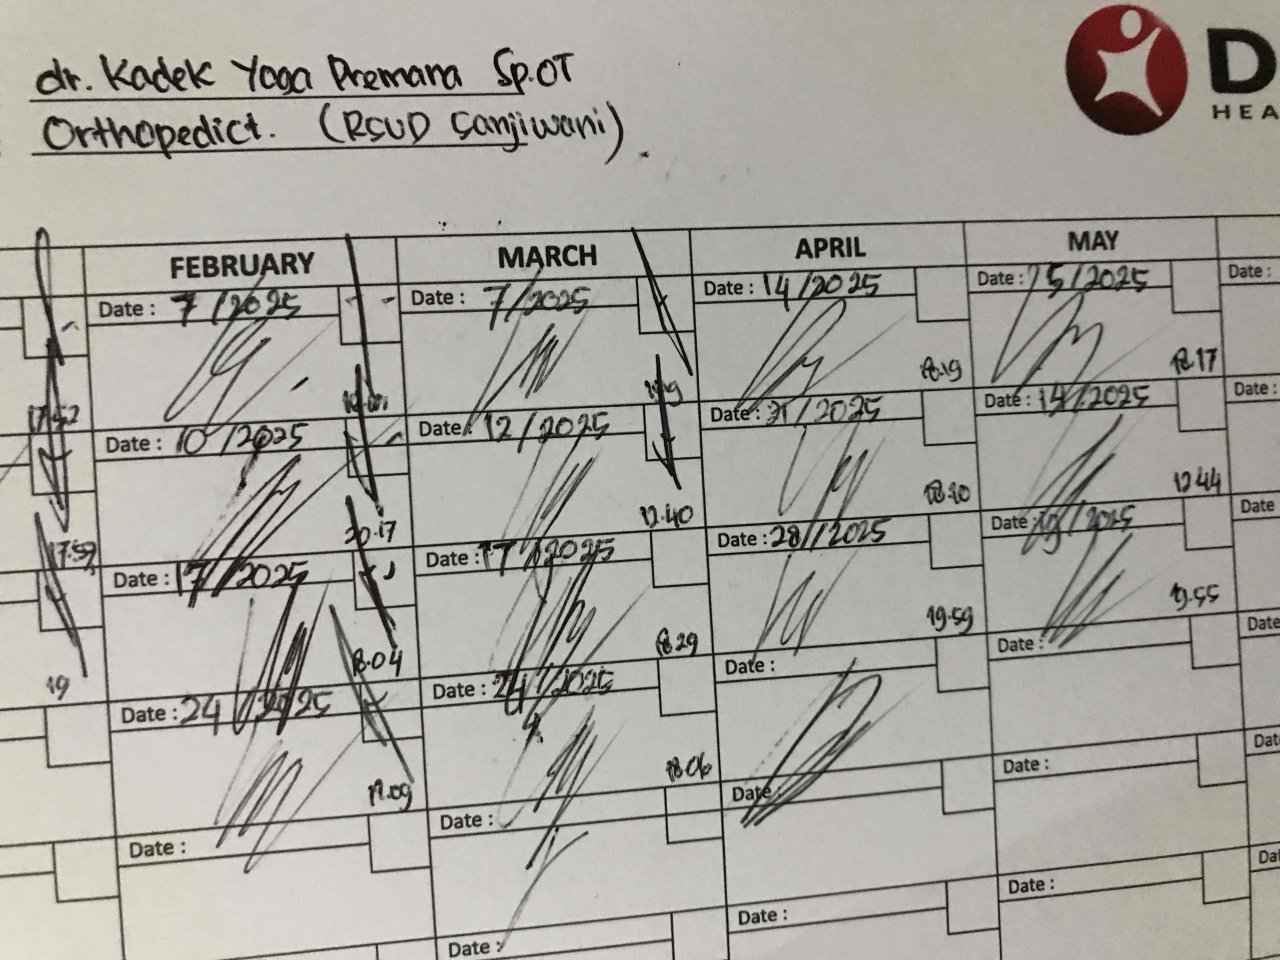 dr. Kadek Yoga Premana Sp.OT
Orthopedict. (RSUD Sanjiwani).
D
HEA
FEBRUARY MARCH APRIL MAY
Date : 7 /2025 Date : 7/2025 Date : 14/2025 Date : 5/2025 Date :
17.52 18.19 18.17
Date : 10 /2025 Date : 12/2025 Date : 21/2025 Date : 14/2025 Date :
17.59 20.17 12.40 12.44
Date : 17/2025 Date : 17/2025 Date : 28/2025 Date : 19/2025 Date
19 18.04 18.29 19.59 19.55
Date : 24/2025 Date : 24/2025 Date : Date : Date
18.06
Date : Date : Date : Date : Dat
Date : Date : Date : Dat